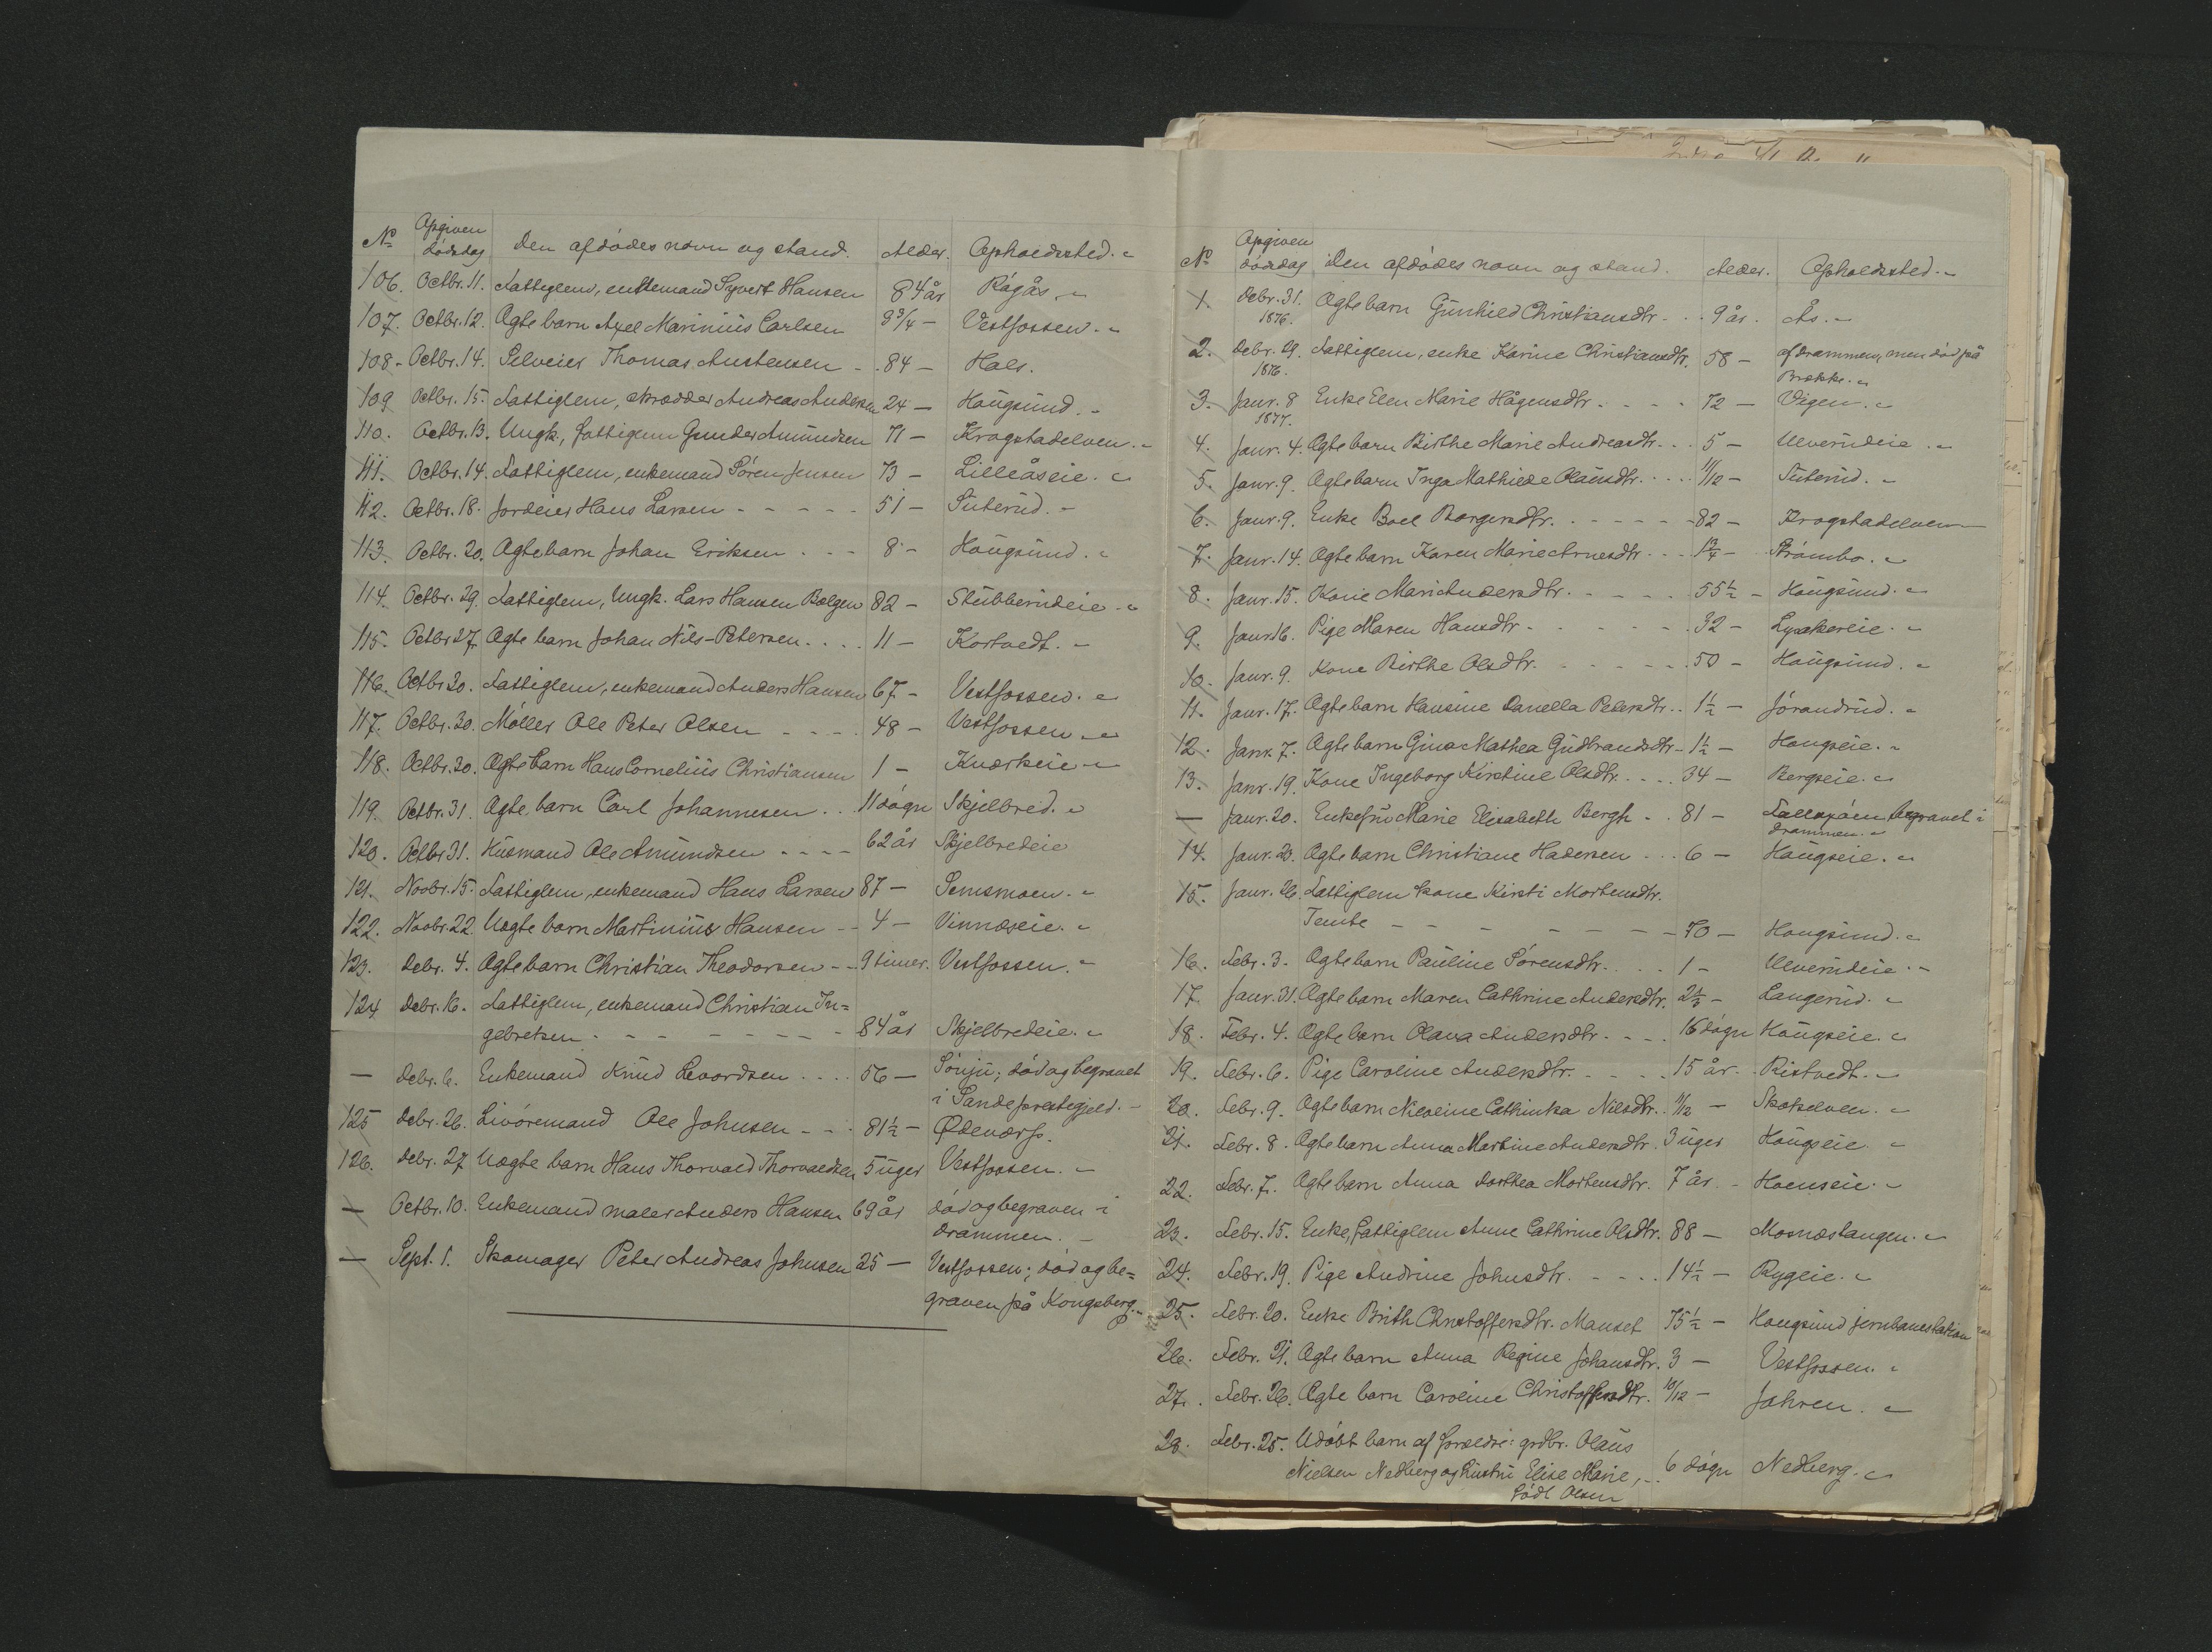 No Opgiven dødsdag Den afdødes navn og stand. Alder. Opholdssted.
106. Octbr. 11. Fattiglem, enkemand Syvert Hansen 84 år Rågås.
107. Octbr. 12. Ægte barn Axel Marinius Carlsen 8 3/4 – Vestfossen.
108. Octbr. 14. Selveier Thomas Austensen - . 84 – Hals.
109 Octbr. 15. Fattiglem, skrædder Andreas Andersen 24 – Hougsund.
110. Octbr. 13. Ungk., fattiglem Gunder Amundsen 71 – Krogstadelven.
111. Octbr. 14. Fattiglem, enkemand Søren Jensen 73 – Lilleåseie.
112. Octbr. 18. Jordeier Hans Larsen - - - - - 51 – Suterud.
113. Octbr. 20. Ægte barn Johan Eriksen . - - 8 – Hougsund.
114. Octbr. 29. Fattiglem, Ungk. Lars Hansen Bølgen 82 – Stubberudeie.
115. Octbr 27. Ægte barn Johan Nils-Petersen . . . . 11 – Kortvedt.
116. Octbr 30. Fattiglem, enkemand Anders Hansen 67 – Vestfossen.
117. Octbr. 30. Møller Ole Peter Olsen - - - - 48 – Vestfossen.
118. Octbr. 30. Ægte barn Hans Cornelius Christiansen 1 – Knærkeie
119. Octbr. 31. Ægte barn Carl Johannesen . . 11 døgn Skjelbred.
120. Octbr 31. Husmand Ole Amundsen - - - - 62 år Skjelbredeie
121. Novbr. 15. Fattiglem, enkemand Hans Larsen 87 – Semsmoen.
122. Novbr. 22. Uægte barn Martinius Hansen - - 4 – Vinnæseie.
123. Debr. 4. Ægte barn Christian Theodorsen - - 9 timer. Vestfossen.
124 Debr. 16. Fattiglem, enkemand Christian In=
gebretsen - - - - - - - - 84 år Skjelbredeie.
— Debr. 6. Enkemand Knud Levordsen . . . . 56 – Sønju; død og begravet
i Sande præstegjeld. –
125 Debr. 26. Livøremand Ole Johnsen - - - 81 1/2 – Ødeværp.
126. Debr. 27 Uægte barn Hans Thorvald Thorvaldsen 5 uger Vestfossen.
— Octbr. 10. Enkemand maler Anders Hansen 69 år død og begraven i
Drammen. –
— Sept. 1. Skomager Peter Andreas Johnsen 25 – Vestfossen; død og be=
graven på Kongsberg.
No Opgiven dødsdag Den afdødes navn og stand. Alder. Opholdssted.
1. Debr. 31. 1876. Ægte barn Gunhild Christiansdtr. . . 9 år. Ås.
2. Debr. 29. 1876. Fattiglem, enke Karine Christiansdtr. 58 – af Drammen, men død på
Brekke.
3. Janr. 8 1877. Enke Elen Marie Hågensdtr. - - - - 72 – Vigen.
4. Janr. 4. Ægte barn Birthe Marie Andreasdtr. . . 5 – Ulverudeie.
5. Janr. 9. Ægte barn Inga Mathilde Olausdtr. . . . . 11/12 – Suterud.
6. Janr. 9. Enke Boel Borgersdtr. - - - - - - 82 – Krogstadelven
7. Janr. 14. Ægte barn Karen Marie Arnesdtr. - - 1 3/4 – Strømbo.
8. Janr. 15. Kone Mari Andersdtr. - - - - - 55 1/2 – Hougsund.
9. Janr 16. Pige Maren Hansdtr - - - - - - 32 – Lysakereie.
10. Janr. 9. Kone Birthe Olsdtr. - - - - - - 50 – Hougsund.
11. Janr. 17. Ægte barn Hansine Danella Petersdtr. . 1 1/2 – Jørandrud.
12. Janr. 7. Ægte barn Gina Mathea Gudbrandsdtr - 1 1/2 – Hougseie.
13. Janr. 19. Kone Ingeborg Kirstine Olsdtr. . . . 34 – Bergseie.
— Janr. 20. Enkefru Marie Elisabeth Bergh - . 81 – begravet i
Drammen.
14. Janr. 20. Ægte barn Christiane Halvorsen . . . 6 – Hougseie.
15. Janr. 26. Fattiglem kone Kirsti Mortensdtr.
Tembe - - - - - - - - 70 – Hougsund.
16. Febr. 3. Ægte barn Pauline Sørensdtr. . . . 1 – Ulverudeie.
17. Janr. 31. Ægte barn Maren Cathrine Andersdtr. 2 1/2 – Langerud.
18. Febr. 4. Ægte barn Olava Andersdtr. - - - . 16 døgn Hougseie.
19. Febr. 6. Pige Caroline Andersdtr. - - - - . 15 år. Ristvedt.
20. Febr. 9. Ægte barn Nicoline Cathinka Nilsdtr. . 11/12 – Skotselven.
21. Febr. 8. Ægte barn Anna Martine Andersdtr. 3 uger Hougseie.
22. Febr. 7. Ægte barn Anna Dorthea Mortensdtr. 7 år. Hoenseie.
23. Febr. 15. Enke, fattiglem Anne Cathrine Olsdtr. 88 – Mosnæstangen.
24. Febr. 19. Pige Andrine Johnsdtr. - - - . 14 1/2 – Rygeie.
25. Febr. 20. Enke Brith Christoffersdtr. Manset 75 1/2 – Hougsund jernbanestation
26. Febr. 21. Ægte barn Anna Regine Johansdtr. 3 – Vestfossen.
27. Febr. 26. Ægte barn Caroline Christoffersdtr. 10/12 – Jahren.
28. Febr. 25. Udøbt barn af forældre: grdbr. Olaus
Nielsen Nedberg og hustru Elise Marie, - . 6 døgn Nedberg.
født Olsen